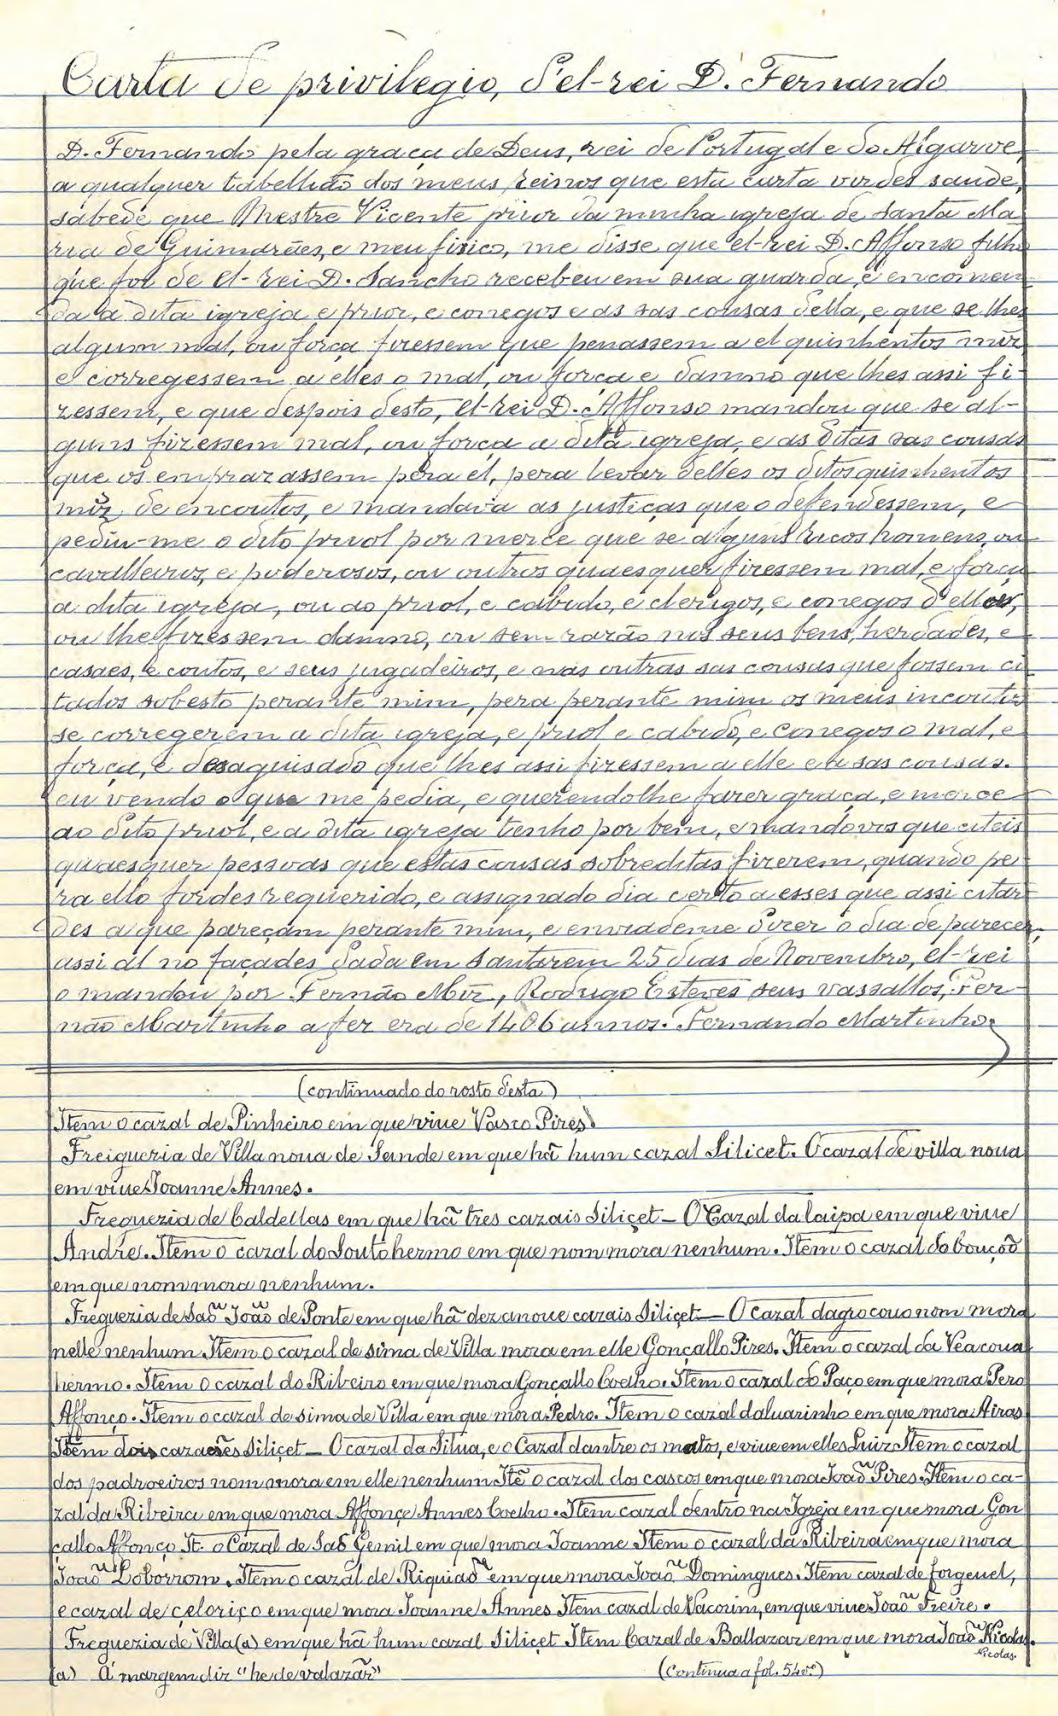 Carta de privilegio, d'el-rei D. Fernando
D. Fernando pela graça de Deus, rei de Portugal e do Algarve,
a qualquer tabellião dos meus reinos que esta carta virdes saude,
sabede que Mestre Vicente prior da minha igreja de Santa Ma
ria de Guimarães, e meu fisico, me disse que el-rei D. Affonso filho
que foi de el-rei D. Sancho recebeu em sua guarda, e encomen-
da a dita igreja e prior, e conegos e as sas cousas della, e que se lhes
algum mal, ou força fizessem que penassem a el quinhentos mrz,
e corregessem a elles o mal, ou força e damno que lhes assi fi-
zessem, e que despois desto, el-rei D. Affonso mandou que se al-
guns fizessem mal, ou força a dita igreja, e as ditas sas cousas
que os emprazassem pera el, pera levar delles os ditos quinhentos
mrz de encoutos, e mandava as justiças que o defendessem, e
pediu-me o dito priol por merce que se alguns ricos homens, ou
cavalleiros, e poderosos, ou outros quaesquer fizessem mal, e força
a dita igreja, ou ao priol, e cabido, e clerigos, e conegos d'ella,
ou lhe fizessem damno, ou sem razão nos seus bens, herdades, e
casaes, e coutos, e seus jugadeiros, e nas outras sas cousas que fossem ci
tados sobesto perante mim, pera perante mim os meus incoutos
se corregerem a dita igreja, e priol e cabido, e conegos o mal, e
força, e desaguisado que lhes assi fizessem a elle e a sas cousas.
eu vendo o que me pedia, e querendolhe fazer graça, e merce
ao dito priol, e a dita igreja tenho por bem, e mandovos que citeis
quaesquer pessoas que estas cousas sobreditas fizerem, quando pe
ra ello fordes requerido, e assignado dia certo a esses que assi citar-
des a que pareçam perante mim, e enviademe dizer o dia de parecer,
assi al no façades dada em Santarem 25 dias de Novembro, el-rei
o mandou por Fernão Mrz, Rodrigo Esteves seus vassallos, Fer-
não Martinho a fez era de 1406 annos. Fernando Martinho.
(continuado do rosto desta)
Item o cazal de Pinheiro em que viue Vasco Pires
Freigueria de Villa noua de Sande em que hã hum cazal Siliçet. O cazal de villa noua
em viue Joanne Annes.
Freguezia de Caldellas em que hã tres cazais Siliçet — O Cazal da laipa em que viue
Andre. Item o cazal do Souto hermo em que nom mora nenhum. Item o cazal do bouçõ
em que nom mora nenhum.
Freguezia de Saõ Joaõ de Ponte em que hã dezanoue cazais Siliçet — O cazal dagrocouo nom mora
nelle nenhum Item o cazal de sima de Villa mora em elle Gonçallo Pires. Item o cazal da Veacoua
hermo. Item o cazal do Ribeiro em que mora Gonçallo Coelho. Item o cazal do Paço em que mora Pero
Affonço. Item o cazal de sima de Villa em que mora Pedro. Item o cazal daluarinho em que mora Airas
Item dois cazaes Siliçet — O cazal da Silua, e o Cazal dantre os matos, e viue em elles Luiz Item o cazal
dos padroeiros nom mora em elle nenhum Itẽ o cazal dos cascos em que mora Joaõ Pires. Item o ca-
zal da Ribeira em que mora Affonço Annes Coelho. Item cazal dentro na Igreja em que mora Gon
çallo Affonço It. o Cazal de Saõ Gemil em que mora Joanne Item o cazal da Ribeira em que mora
Joaõ Loborrom. Item o cazal de Riquiaõ em que mora Joaõ Domingues. Item cazal de forgeuel,
e cazal de çeloriço em que mora Joanne Annes Item cazal de Vacorim, em que viue Joaõ Freire.
Freguezia de Villa (a) em que hã hum cazal Siliçet Item Cazal de Baltazar em que mora Joaõ Nicolas.
Nicolas.
(a) Á margem diz "he de valazaõ"
(Continua a fol. 540)